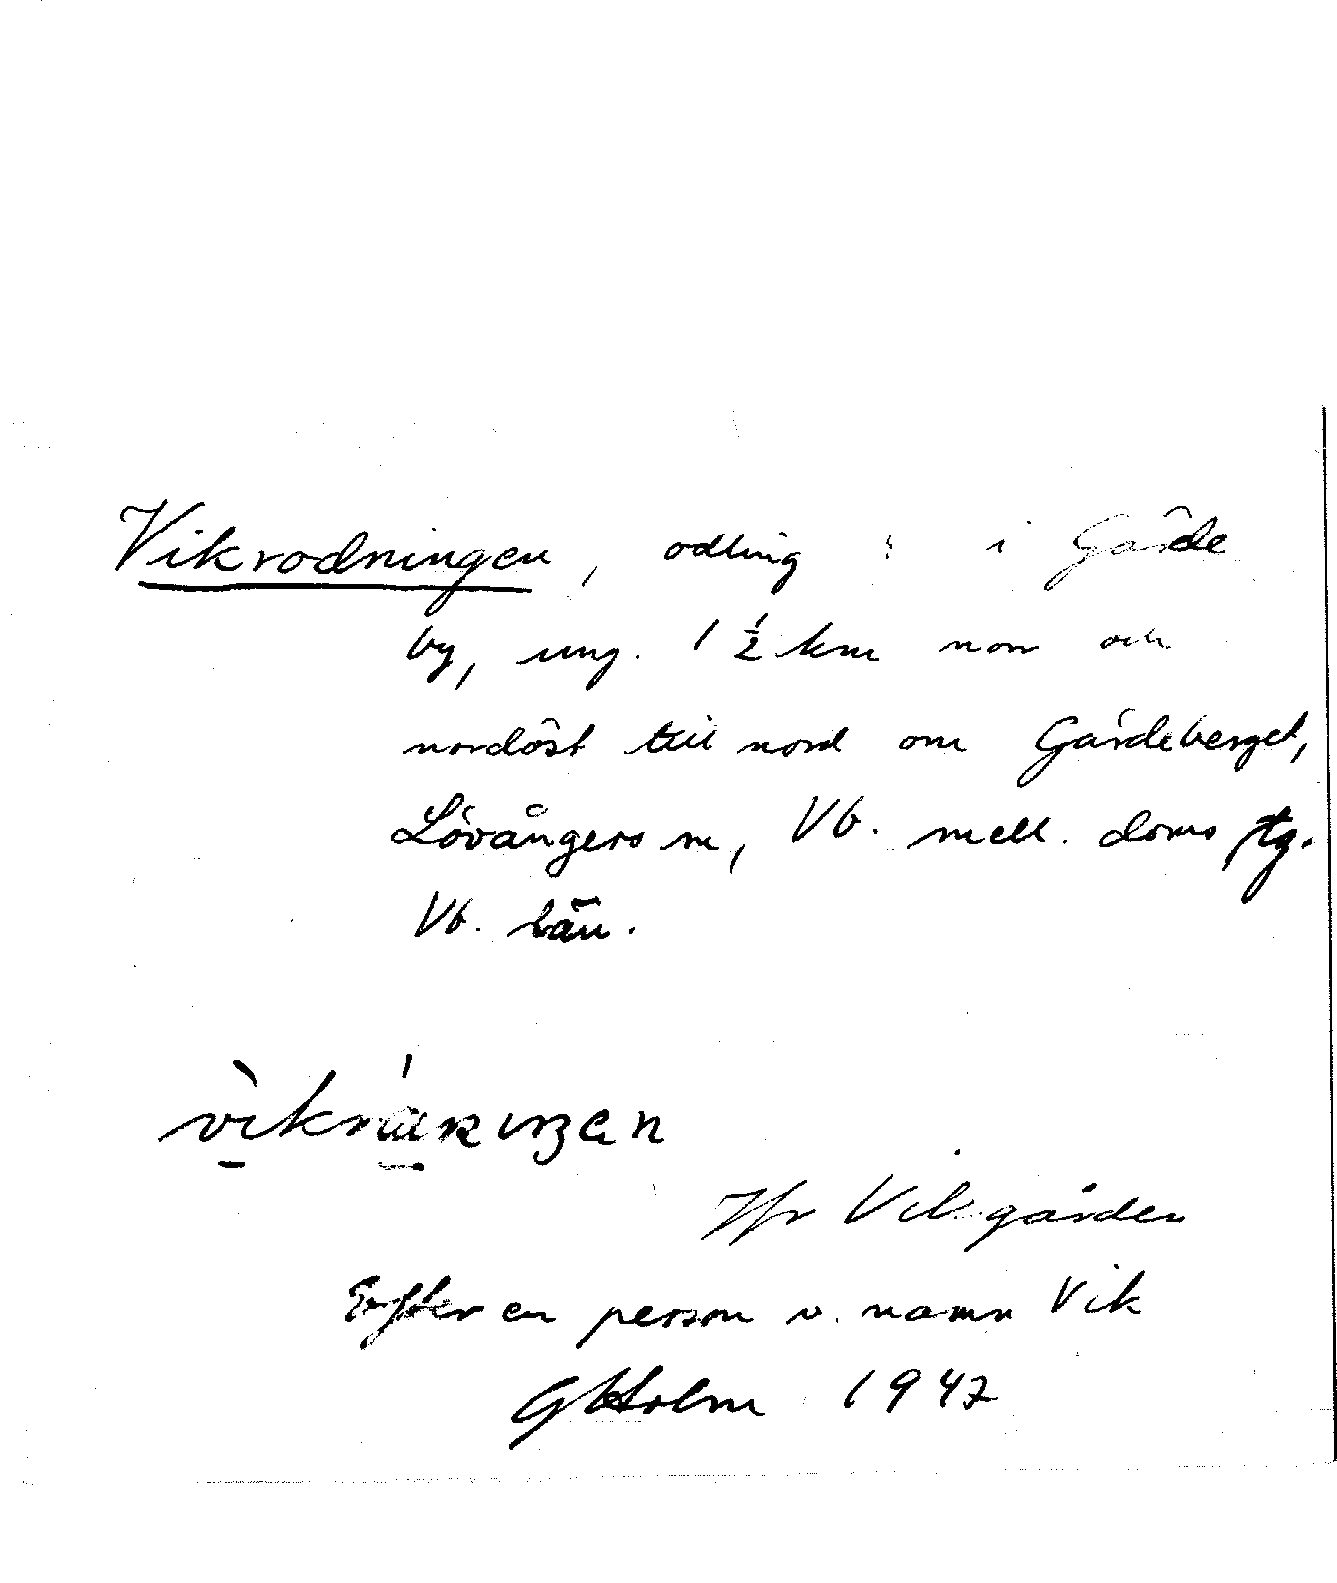 Vikrodningen, odling i Gärde
by, ung. 1 ½ km norr och
nordöst till nord om Gärdeberget,
Lövångers sn, Vb. mell. doms stg.
Vb. län.
Jfr Vikgården
Efter en person v. namn Vik
GHolm 1947